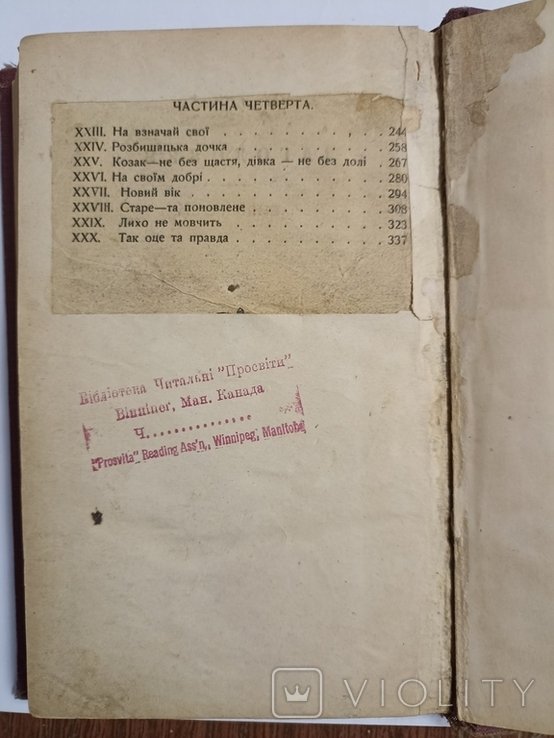 ЧАСТИНА ЧЕТВЕРТА.
XXIII. На взначай свої . . . . . . . . . . . . 244
XXIV. Розбишацька дочка . . . . . . . . . . . 258
XXV. Козак—не без щастя, дівка — не без долі . 267
XXVI. На своїм добрі . . . . . . . . . . . . . 280
XXVII. Новий вік . . . . . . . . . . . . . . . 294
XXVIII. Старе—та поновлене . . . . . . . . . . 308
XXIX. Лихо не мовчить . . . . . . . . . . . . 323
XXX. Так оце та правда . . . . . . . . . . . 337
Бібліотека Читальні "Просвіти"
Вінніпеґ, Ман. Канада
Ч...............
"Prosvita" Reading Ass'n., Winnipeg, Manitoba
VIOLITY